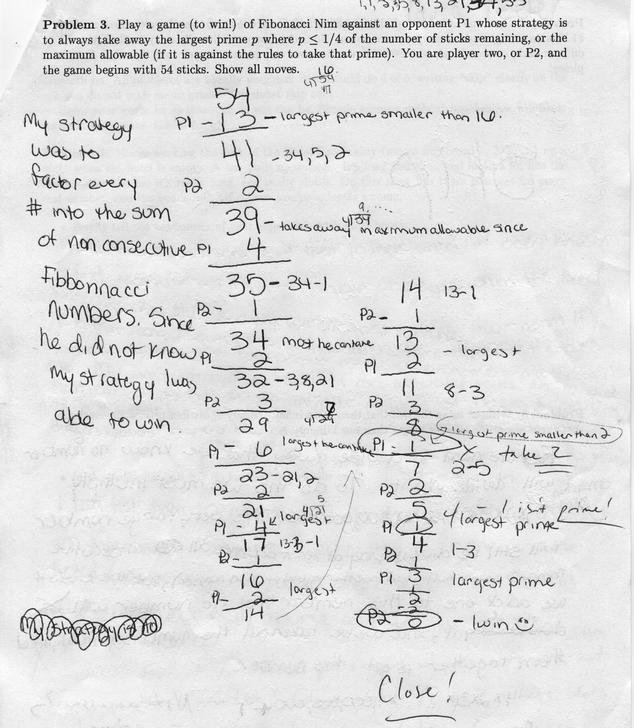 1, 1, 2, 3, 5, 8, 13, 21, 34, 55
Problem 3. Play a game (to win!) of Fibonacci Nim against an opponent P1 whose strategy is
to always take away the largest prime p where p ≤ 1/4 of the number of sticks remaining, or the
maximum allowable (if it is against the rules to take that prime). You are player two, or P2, and
the game begins with 54 sticks. Show all moves.
My strategy
was to
factor every
# into the sum
of non consecutive
Fibbonnacci
numbers. Since
he did not know
my strategy I was
able to win.
54
P1 - 13 - largest prime smaller than 16.
41 - 34, 5, 2
P2 2
39 - takes away maximum allowable since
P1 4
35 - 34-1
P2 - 1
34 most he can take
P1 2
32 - 3,8,21
P2 3
29
P1 - 6 largest he can take
23 - 21, 2
P2 2
21
P1 - 4 largest
17 13-3-1
P2 - 1
16
P1 - 2 largest
14
14 13-1
P2 - 1
13
P1 2 - largest
11 8-3
P2 3
8 largest prime smaller than 2
P1 - 1 x take 2
7 2-5
P2 2
5 - 1 isn't prime!
P1 1 largest prime
4 1-3
P2 1
P1 3 largest prime
1
2
P2 - 2
0 - I win
My Strategy is to
Close!